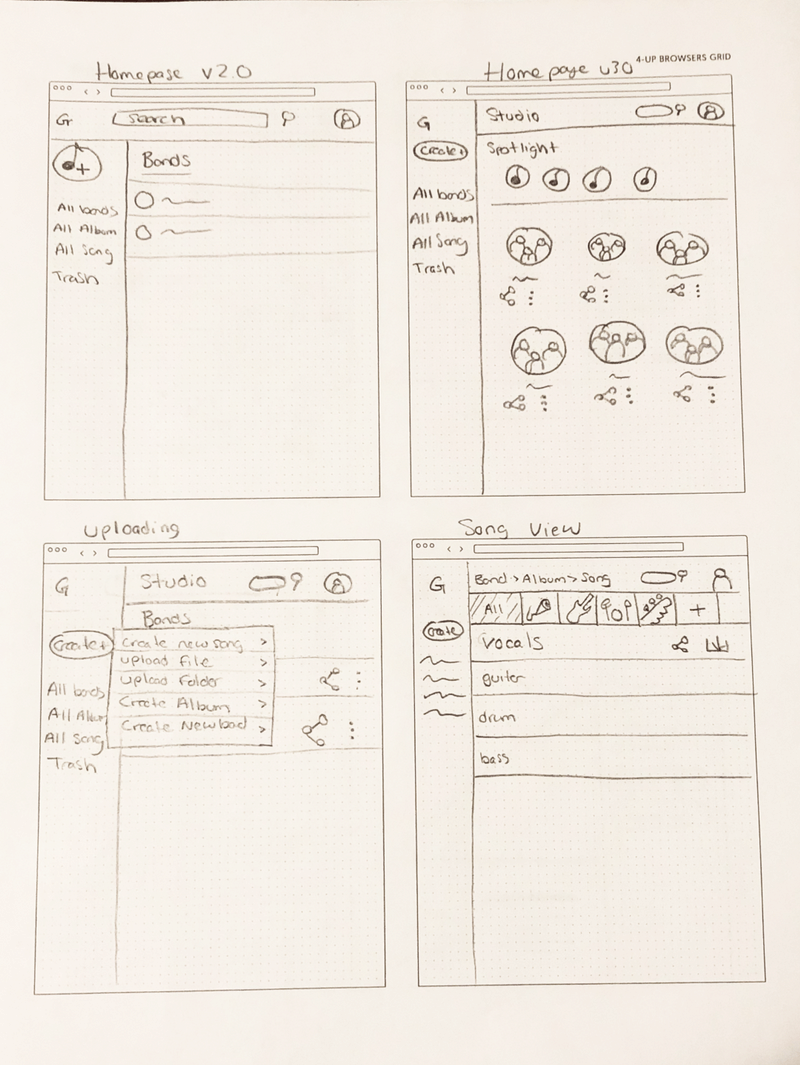 4-UP BROWSERS GRID
Homepage v2.0
G
search
Bands
All bands
All Album
All Song
Trash
Home page v30
G
Studio
Create+
Spotlight
All bands
All Album
All Song
Trash
Uploading
G
Studio
Bands
Create+
Create new song >
Upload File >
Upload Folder >
Create Album >
Create New bad >
All bands
All Album
All Song
Trash
Song View
G
Band > Album > Song
All
+
Create
Vocals
guiter
drum
bass